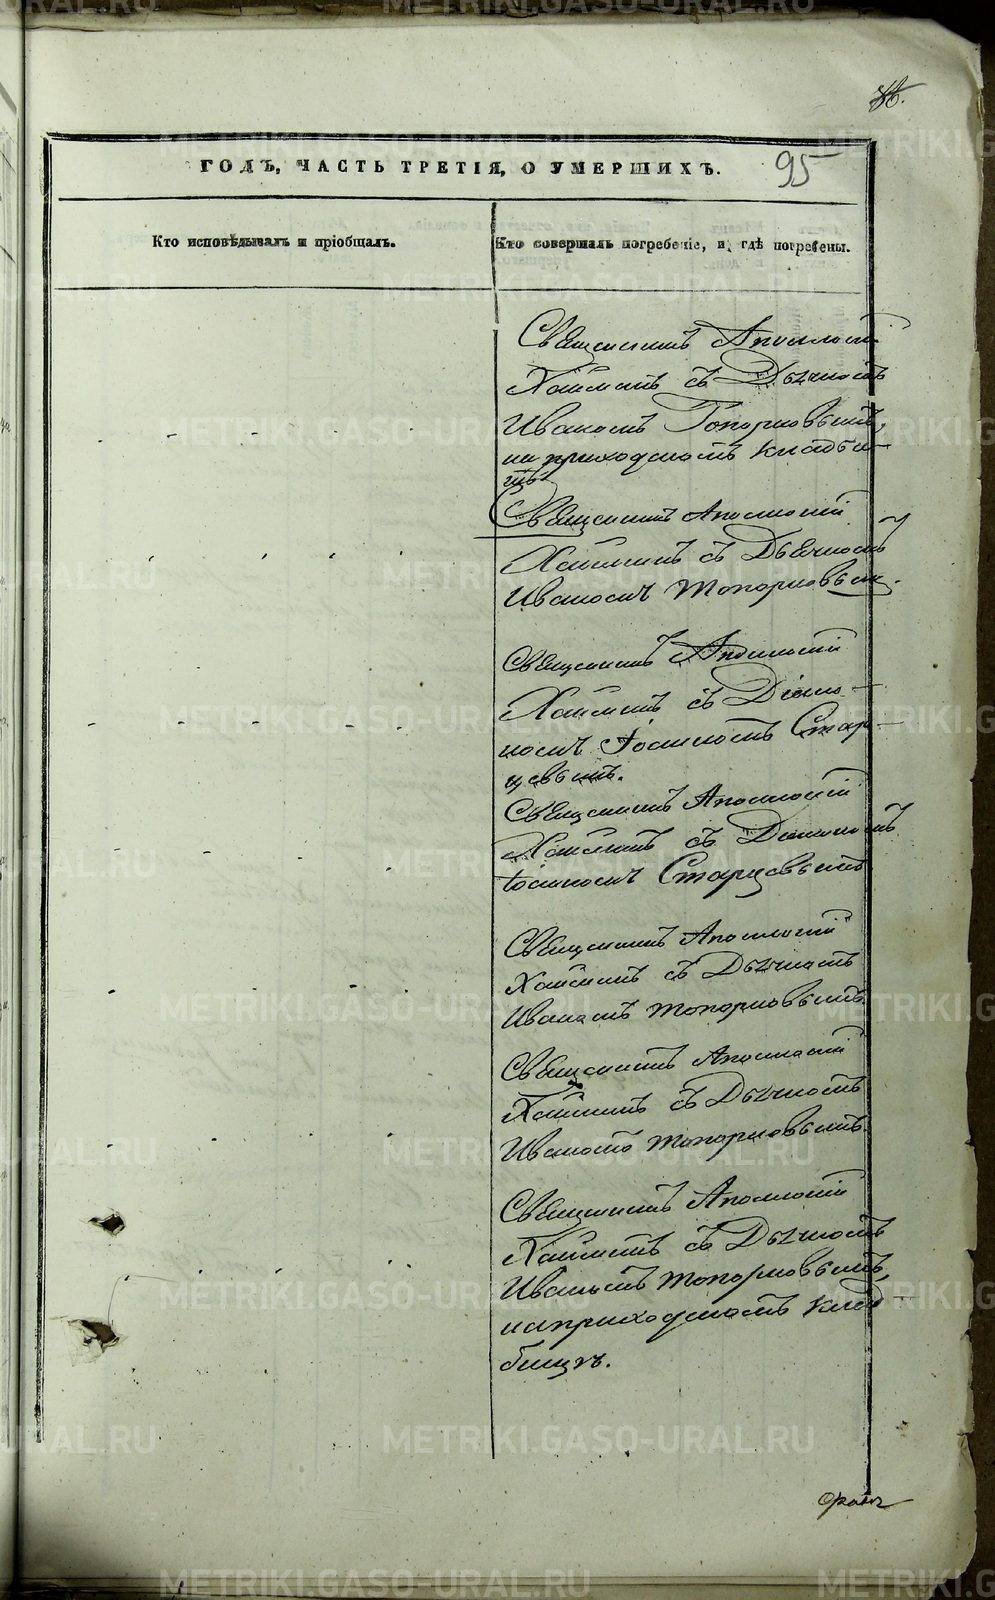 95
ГОДЪ, ЧАСТЬ ТРЕТІЯ, О УМЕРШИХЪ.
Кто исповѣдывалъ и пріобщалъ.
Кто совершалъ погребеніе, и гдѣ погребены.
Священникъ Аполлоній
съ Дьячкомъ
Иваномъ Топорковымъ,
на приходскомъ кладби-
щѣ
Священникъ Аполлоній
съ Дьячкомъ
Иваномъ Топорковым.
Священникъ Аполлоній
съ Діако-
номъ Іоанномъ Стар-
цевымъ.
Священникъ Аполлоній
съ Диакономъ
Іоанномъ Старцевымъ
Священникъ Аполлоній
съ Дьячкомъ
Иваномъ Топорковымъ
Священникъ Аполлоній
съ Дьячкомъ
Иваномъ Топорковымъ.
Священникъ Аполлоній
съ Дьячкомъ
Иваномъ Топорковымъ,
на приходскомъ клад-
бищѣ.
METRIKI.GASO-URAL.RU